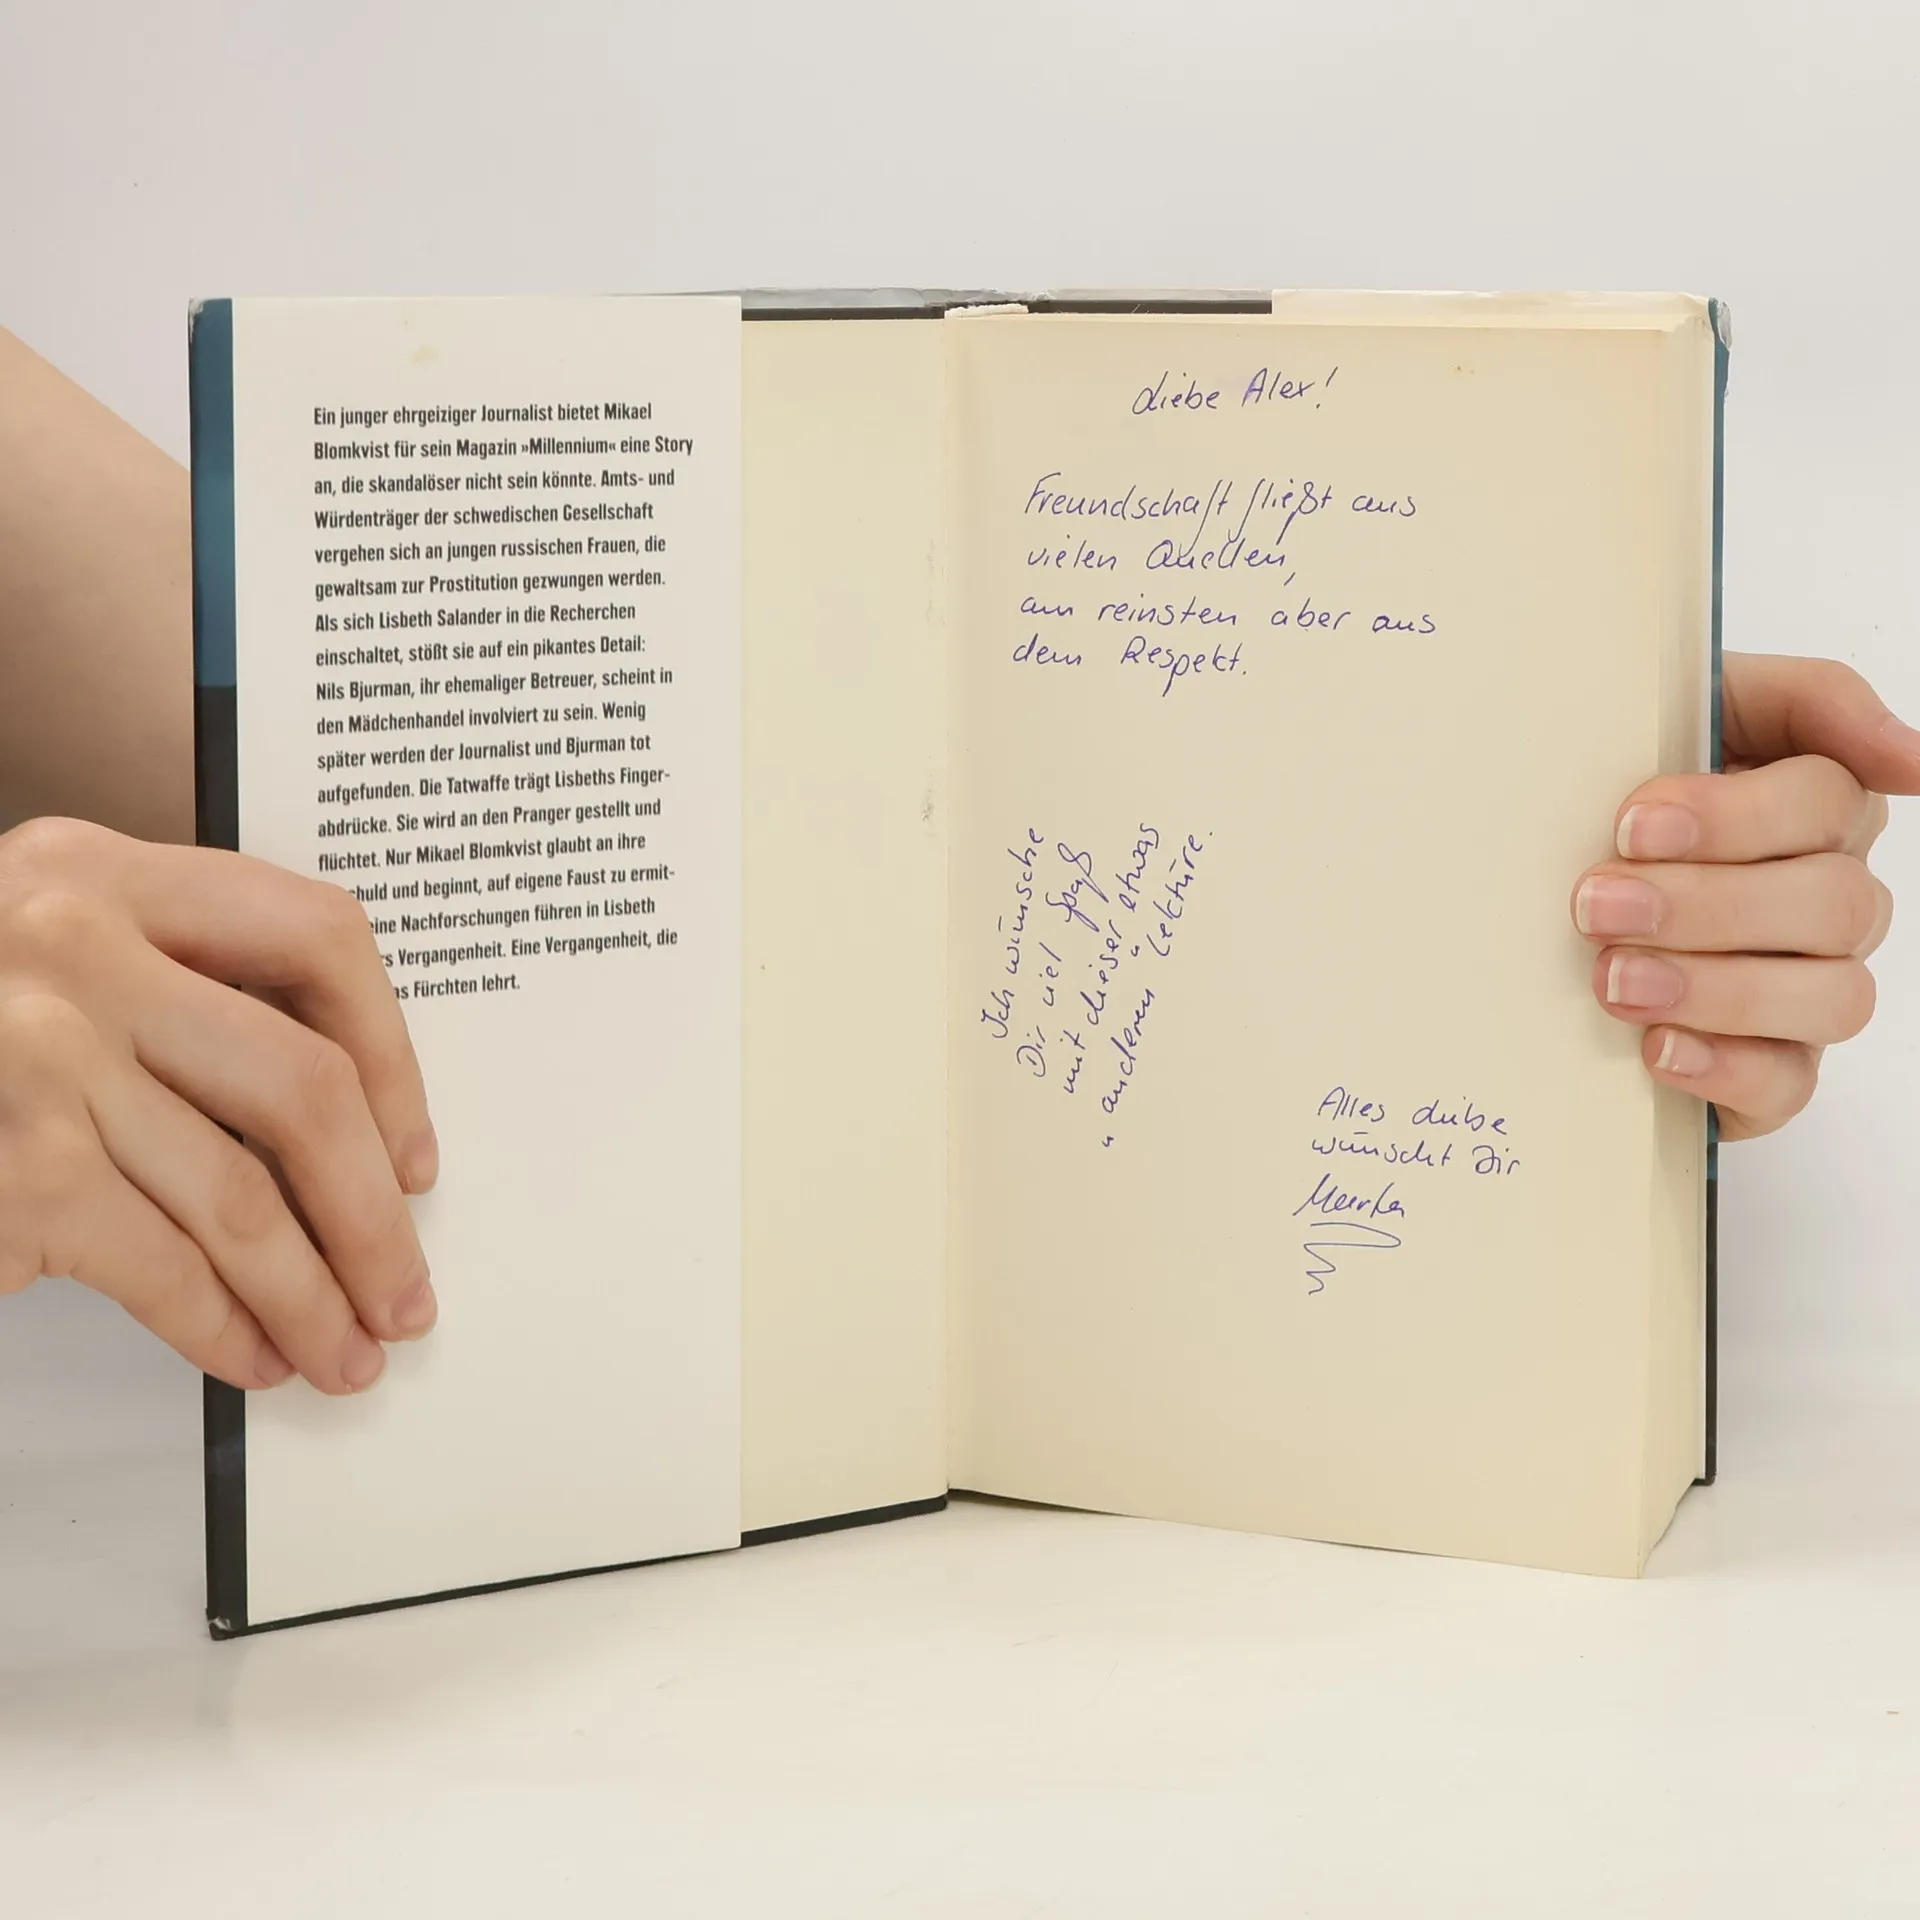 Ein junger ehrgeiziger Journalist bietet Mikael
Blomkvist für sein Magazin »Millennium« eine Story
an, die skandalöser nicht sein könnte. Amts- und
Würdenträger der schwedischen Gesellschaft
vergehen sich an jungen russischen Frauen, die
gewaltsam zur Prostitution gezwungen werden.
Als sich Lisbeth Salander in die Recherchen
einschaltet, stößt sie auf ein pikantes Detail:
Nils Bjurman, ihr ehemaliger Betreuer, scheint in
den Mädchenhandel involviert zu sein. Wenig
später werden der Journalist und Bjurman tot
aufgefunden. Die Tatwaffe trägt Lisbeths Finger-
abdrücke. Sie wird an den Pranger gestellt und
flüchtet. Nur Mikael Blomkvist glaubt an ihre
und beginnt, auf eigene Faust zu ermit-
Nachforschungen führen in Lisbeth
Vergangenheit. Eine Vergangenheit, die
Fürchten lehrt.
Liebe Alex!
Freundschaft fließt aus
vielen Quellen,
am reinsten aber aus
dem Respekt.
Ich wünsche
Dir viel Spaß
mit dieser etwas
"anderen" Lektüre.
Alles Liebe
wünscht Dir